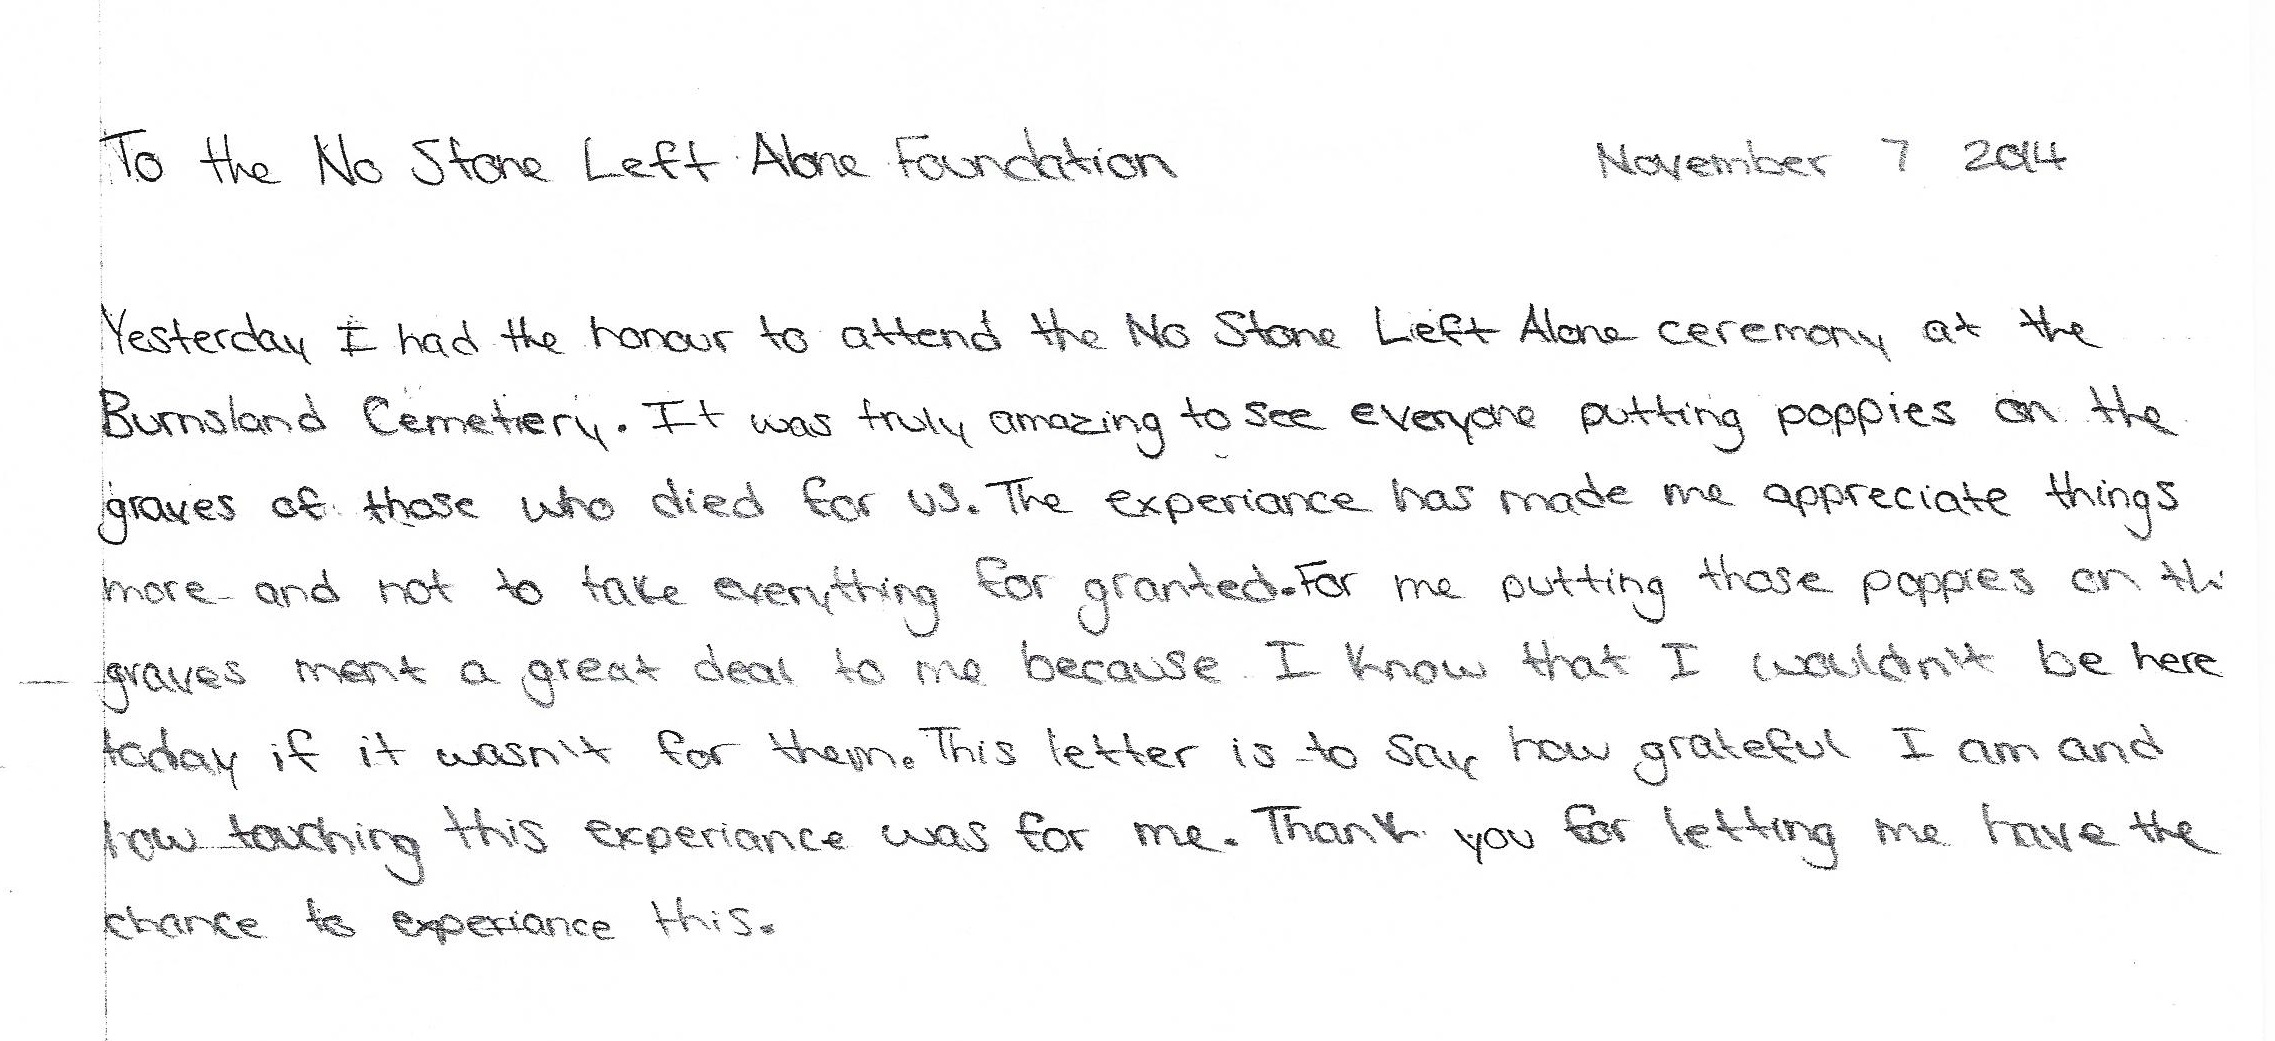 To the No Stone Left Alone Foundation November 7 2014
Yesterday I had the honour to attend the No Stone Left Alone ceremony at the
Burnsland Cemetiery. It was truly amazing to see everyone putting poppies on the
graves of those who died for us. The experiance has made me appreciate things
more and not to take everything for granted. For me putting those poppies on the
graves ment a great deal to me because I know that I wouldn't be here
today if it wasn't for them. This letter is to say how grateful I am and
how touching this experiance was for me. Thank you for letting me have the
chance to experiance this.